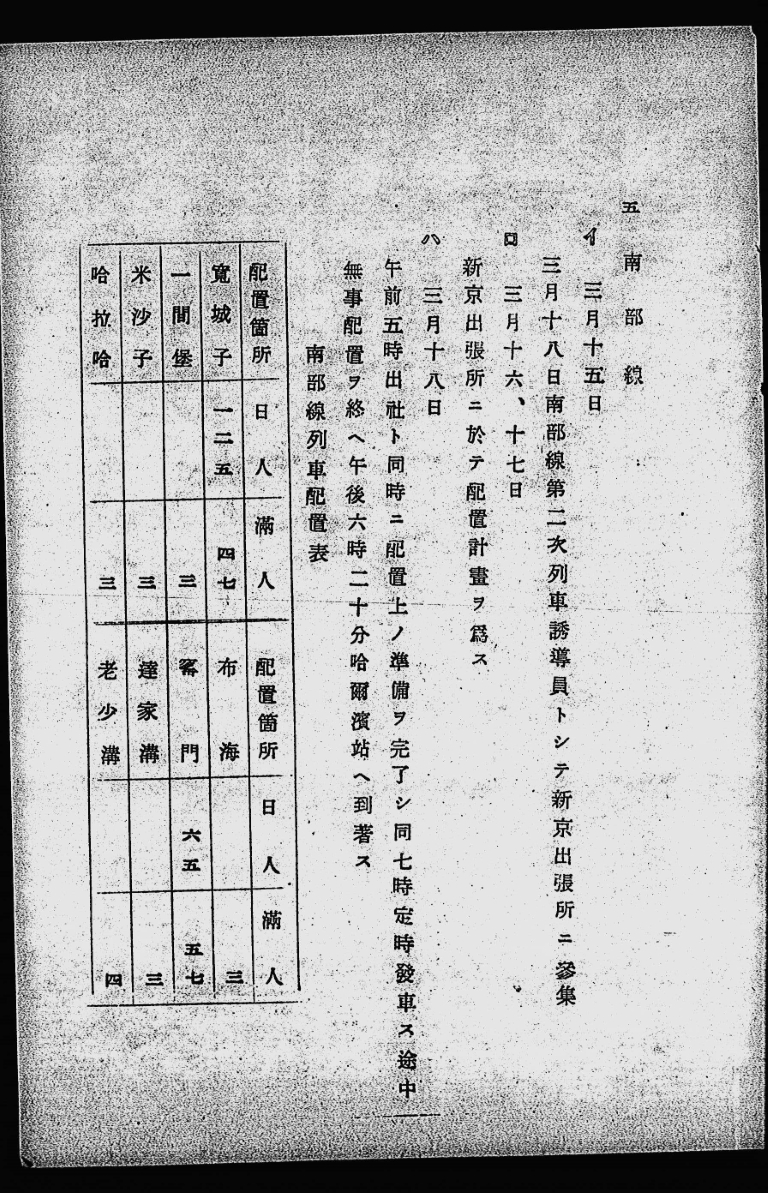 五 南部線
イ 三月十五日
三月十八日南部線第二次列車誘導員トシテ新京出張所ニ參集
ロ 三月十六、十七日
新京出張所ニ於テ配置計畫ヲ爲ス
ハ 三月十八日
午前五時出社ト同時ニ配置上ノ準備ヲ完了シ同七時定時發車ス途中
無事配置ヲ終ヘ午後六時二十分哈爾濱站ヘ到著ス
南部線列車配置表
配置箇所 日人 滿人 配置箇所 日人 滿人
寬城子 一二五 四七 布海 三
一間堡 三 窰門 六五 五七
米沙子 三 達家溝 三
哈拉哈 三 老少溝 四